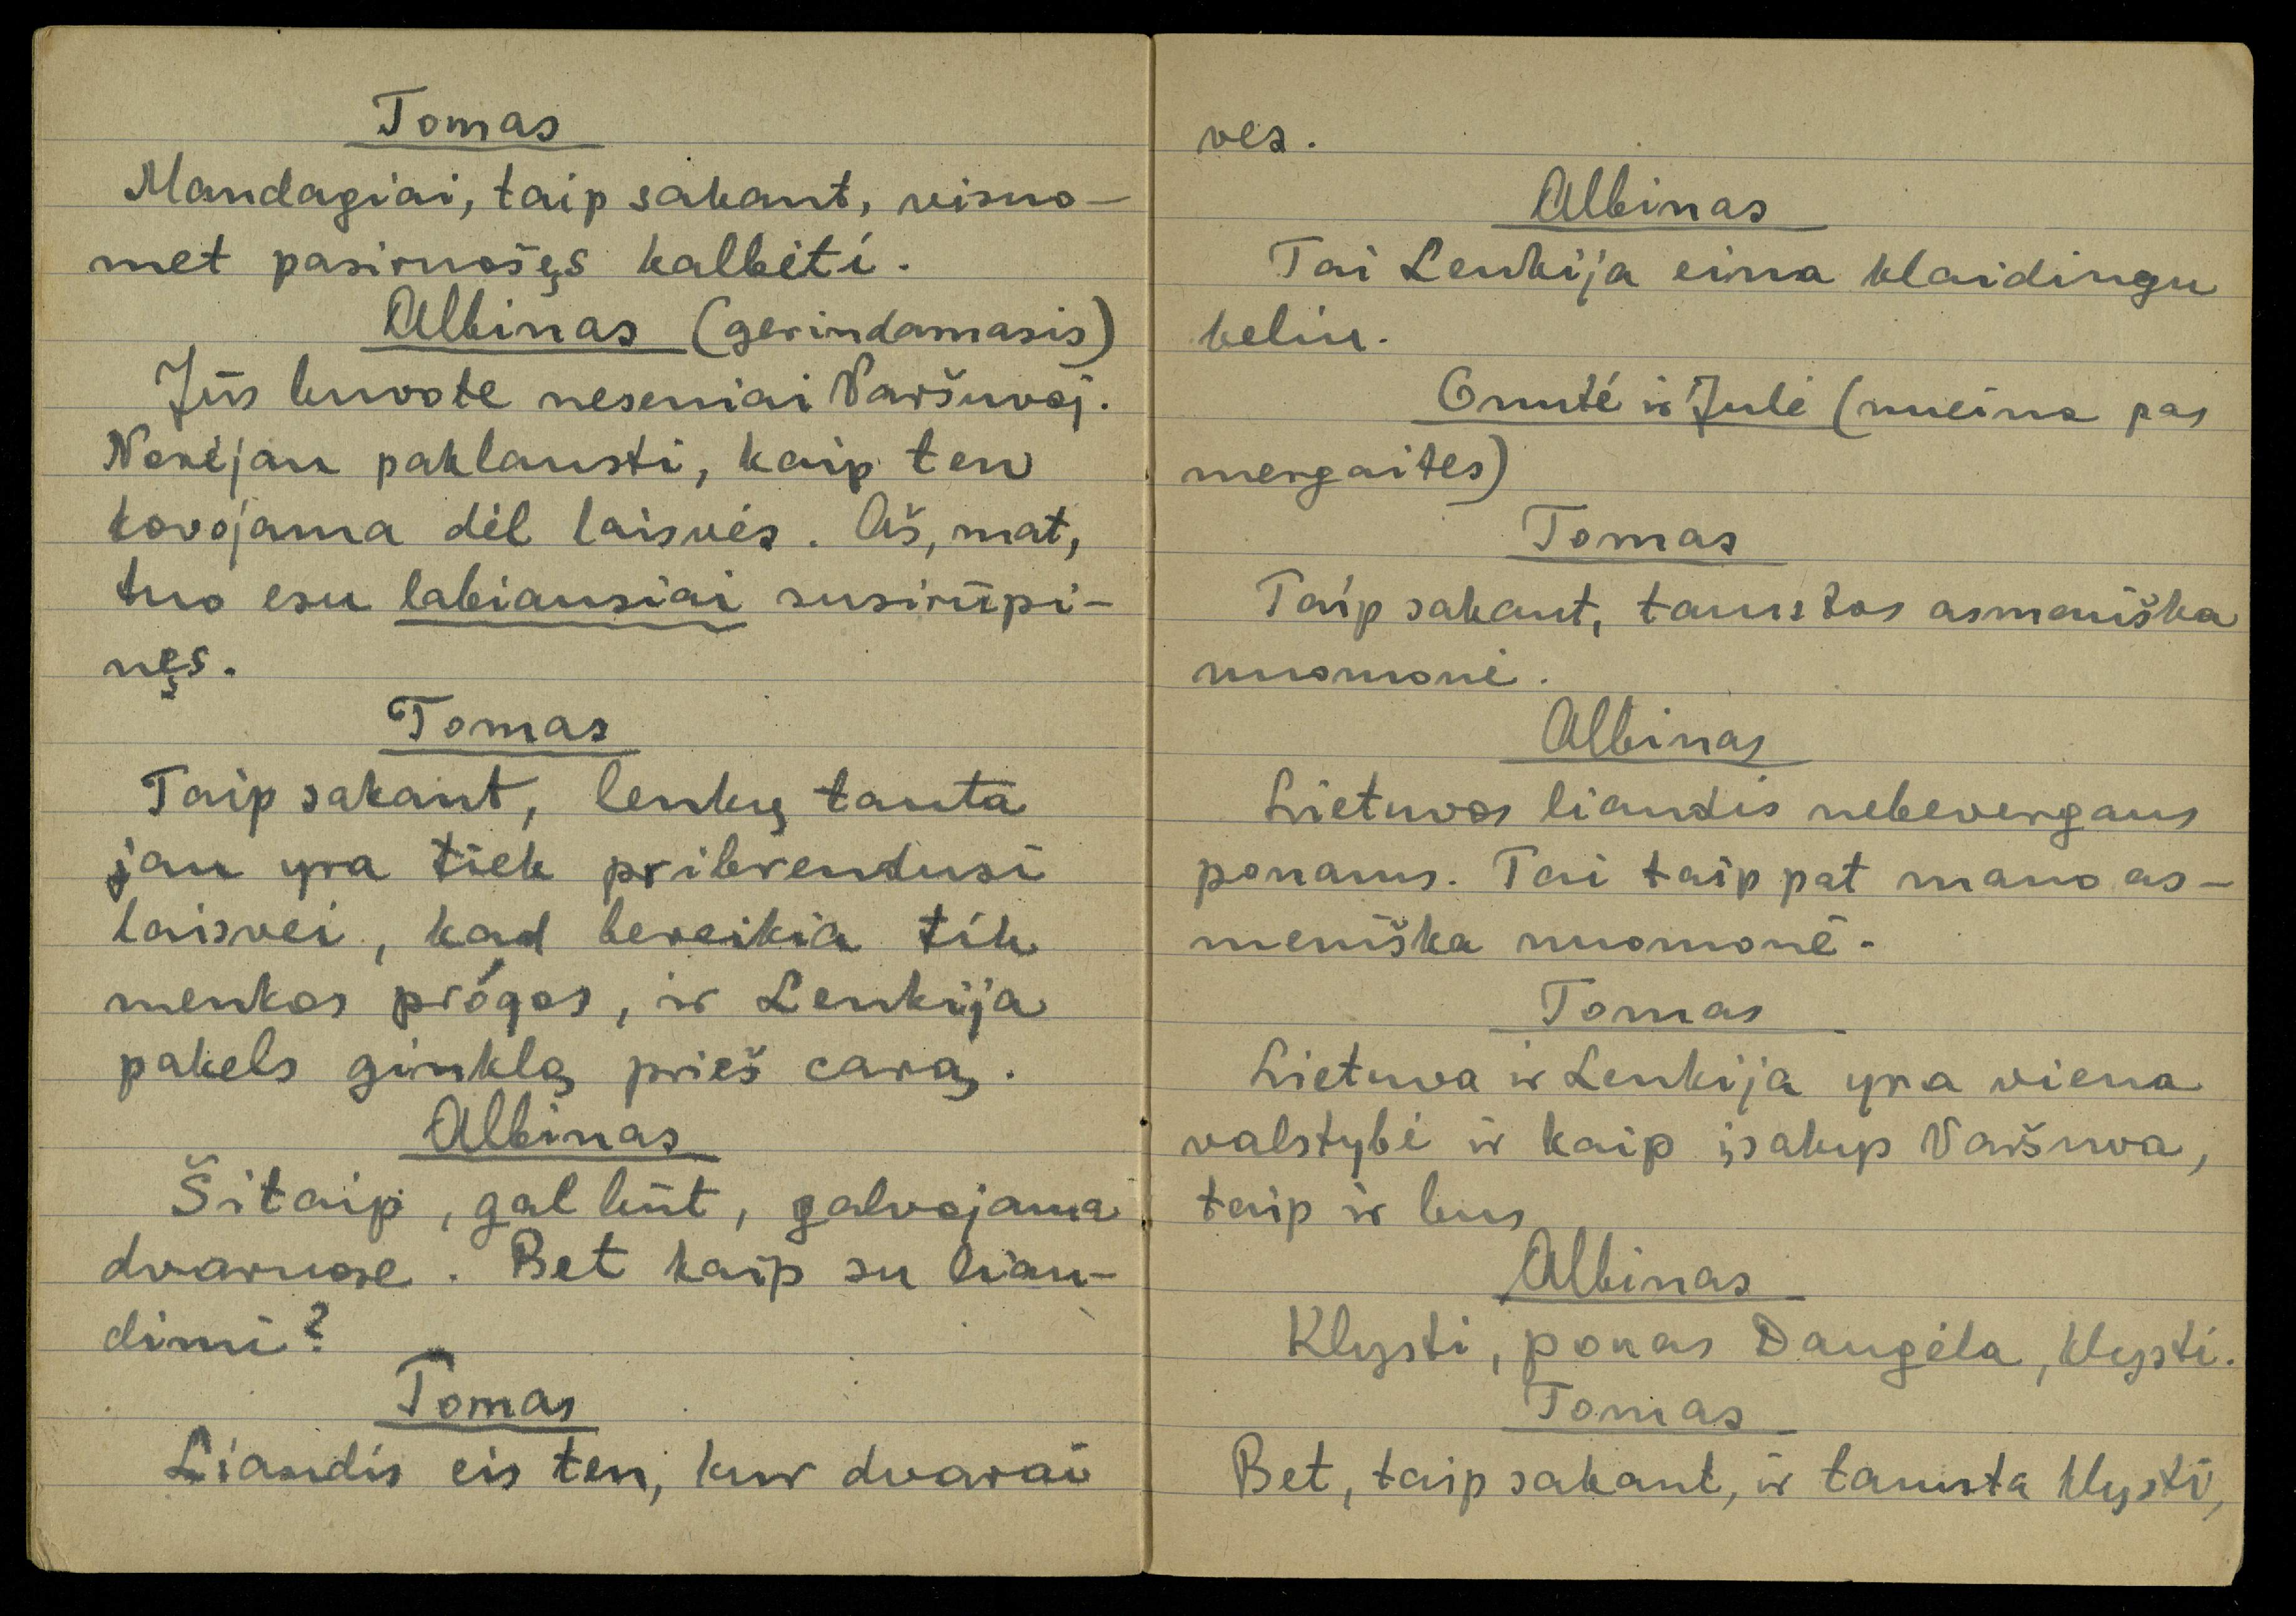 Tomas
Mandagiai, taip sakant, visuo-
met pasiruošęs kalbėti.
Albinas (gerindamasis)
Jūs buvote neseniai Varšuvoj.
Norėjau paklausti, kaip ten
kovojama dėl laisvės. Aš, mat,
tuo esu labiausiai susirūpi-
nęs.
Tomas
Taip sakant, lenkų tauta
jau yra tiek pribrendusi
laisvei, kad bereikia tik
menkos progos, ir Lenkija
pakels ginklą prieš carą.
Albinas
Šitaip, gal būt, galvojama
dvaruose. Bet kaip su liau-
dimi?
Tomas
Liaudis eis ten, kur dvarai
ves.
Albinas
Tai Lenkija eina klaidingu
keliu.
Onutė ir Julė (nueina pas
mergaites)
Tomas
Taip sakant, tamstos asmeniška
nuomonė.
Albinas
Lietuvos liaudis nebevergaus
ponams. Tai taip pat mano as-
meniška nuomonė.
Tomas
Lietuva ir Lenkija yra viena
valstybė ir kaip įsakys Varšuva,
taip ir bus
Albinas
Klysti, ponas Daugėla, klysti.
Tomas
Bet, taip sakant, ir tamsta klysti,